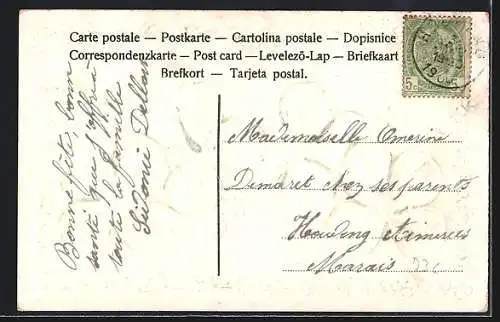 Carte postale — Postkarte — Cartolina postale — Dopisnice
Correspondenzkarte — Post card — Levelező-Lap — Briefkaart
Brefkort — Tarjeta postal.
Bonne fête, bonne
santé que J'offre à
toute la famille
Sidonie
Mademoiselle Omerine
Demaret chez ses parents
Houdeng Aimeries
Marais
5